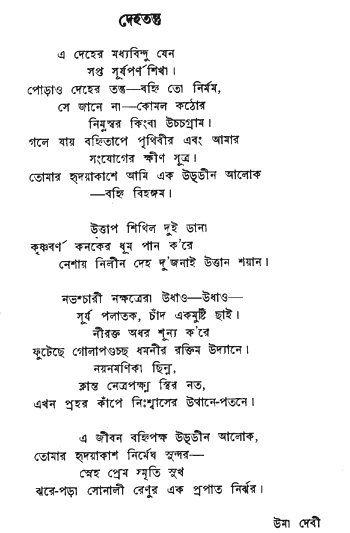 দেহতন্তু
এ দেহের মধ্যবিন্দু যেন
সপ্ত সূর্যপর্ণ শিখা।
পোড়াও দেহের তন্তু—বহ্নি তো নির্মম,
সে জানে না—কোমল কঠোর
নিম্নস্বর কিংবা উচ্চগ্রাম।
গলে যায় বহ্নিতাপে পৃথিবীর এবং আমার
সংযোগের ক্ষীণ সূত্র।
তোমার হৃদয়াকাশে আমি এক উড্ডীন আলোক
—বহ্নি বিহঙ্গম।
উত্তাপ শিথিল দুই ডানা
কৃষ্ণবর্ণ কনকের ধূম পান ক'রে
নেশায় নিলীন দেহ দু'জনাই উত্তান শয়ান।
নভশ্চারী নক্ষত্রেরা উধাও—উধাও—
সূর্য পলাতক, চাঁদ একমুষ্টি ছাই।
নীরক্ত অধর শূন্য ক'রে
ফুটেছে গোলাপগুচ্ছ ধমনীর রক্তিম উদ্যানে।
নয়নমণিকা ছিন্ন,
ক্লান্ত নেত্রপক্ষ্ম স্থির নত,
এখন প্রহর কাঁপে নিঃশ্বাসের উত্থানে-পতনে।
এ জীবন বহ্নিপক্ষ উড্ডীন আলোক,
তোমার হৃদয়াকাশ নির্মেঘ সুন্দর—
স্নেহ প্রেম স্মৃতি সুখ
ঝরে-পড়া সোনালী রেণুর এক প্রপাত নির্ঝর।
উমা দেবী